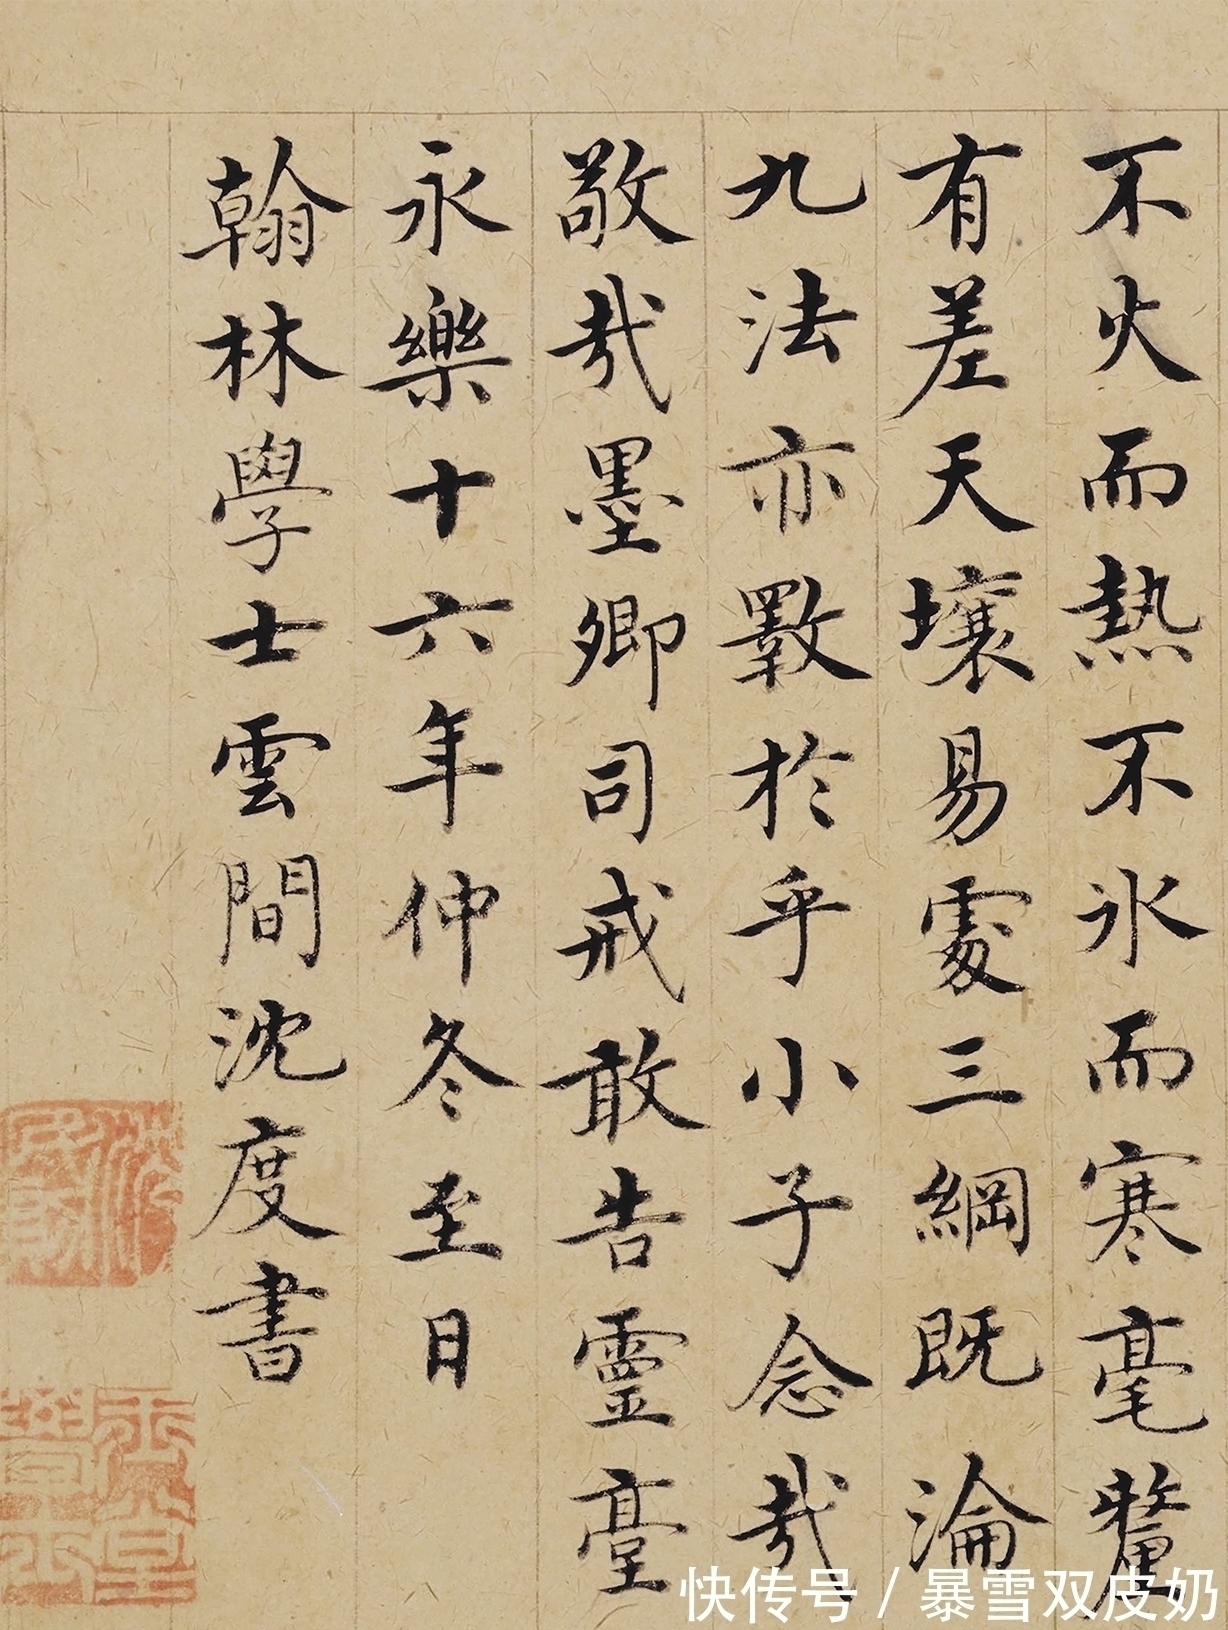 不火而熱不氷而寒毫釐
有差天壤易處三綱既淪
九法亦斁於乎小子念哉
敬哉墨卿司戒敢告靈臺
永樂十六年仲冬至日
翰林學士雲間沈度書
快传号 / 暴雪双皮奶